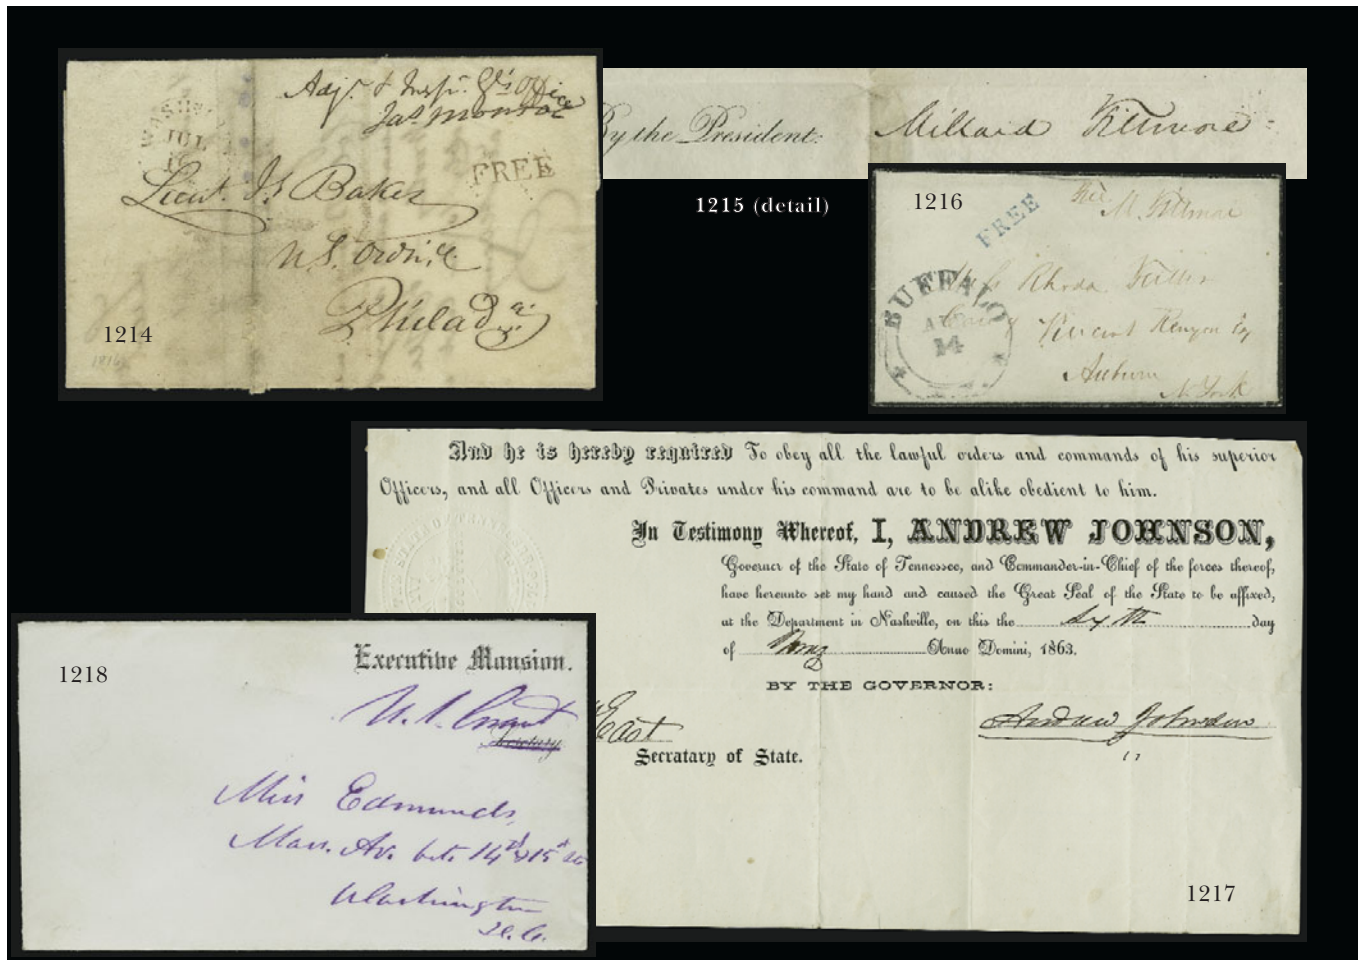 Adjt. & Inspr. Gl's Office
Jas Monroe
WASH
JUL
FREE
Lieut. Is Baker
U.S. Ordn'ce
Philad a.
1214
1816
By the President:
Millard Fillmore
1215 (detail)
1216
FREE
Free
M. Fillmore
BUFFALO
14
Miss Rhoda Fuller
Care Vincent Kenyon Esq
Auburn
N. York
And he is hereby required To obey all the lawful orders and commands of his superior
Officers, and all Officers and Privates under his command are to be alike obedient to him.
In Testimony Whereof, I, ANDREW JOHNSON,
Governor of the State of Tennessee, and Commander-in-Chief of the forces thereof,
have hereunto set my hand and caused the Great Seal of the State to be affixed,
at the Department in Nashville, on this the day
of Anno Domini, 1863.
BY THE GOVERNOR:
East
Andrew Johnson
Secratary of State.
1217
1218
Executive Mansion.
U. S. Grant
Secretary
Miss Edmunds,
Mass. Av. bet. 14th & 15th sts
Washington
D.C.